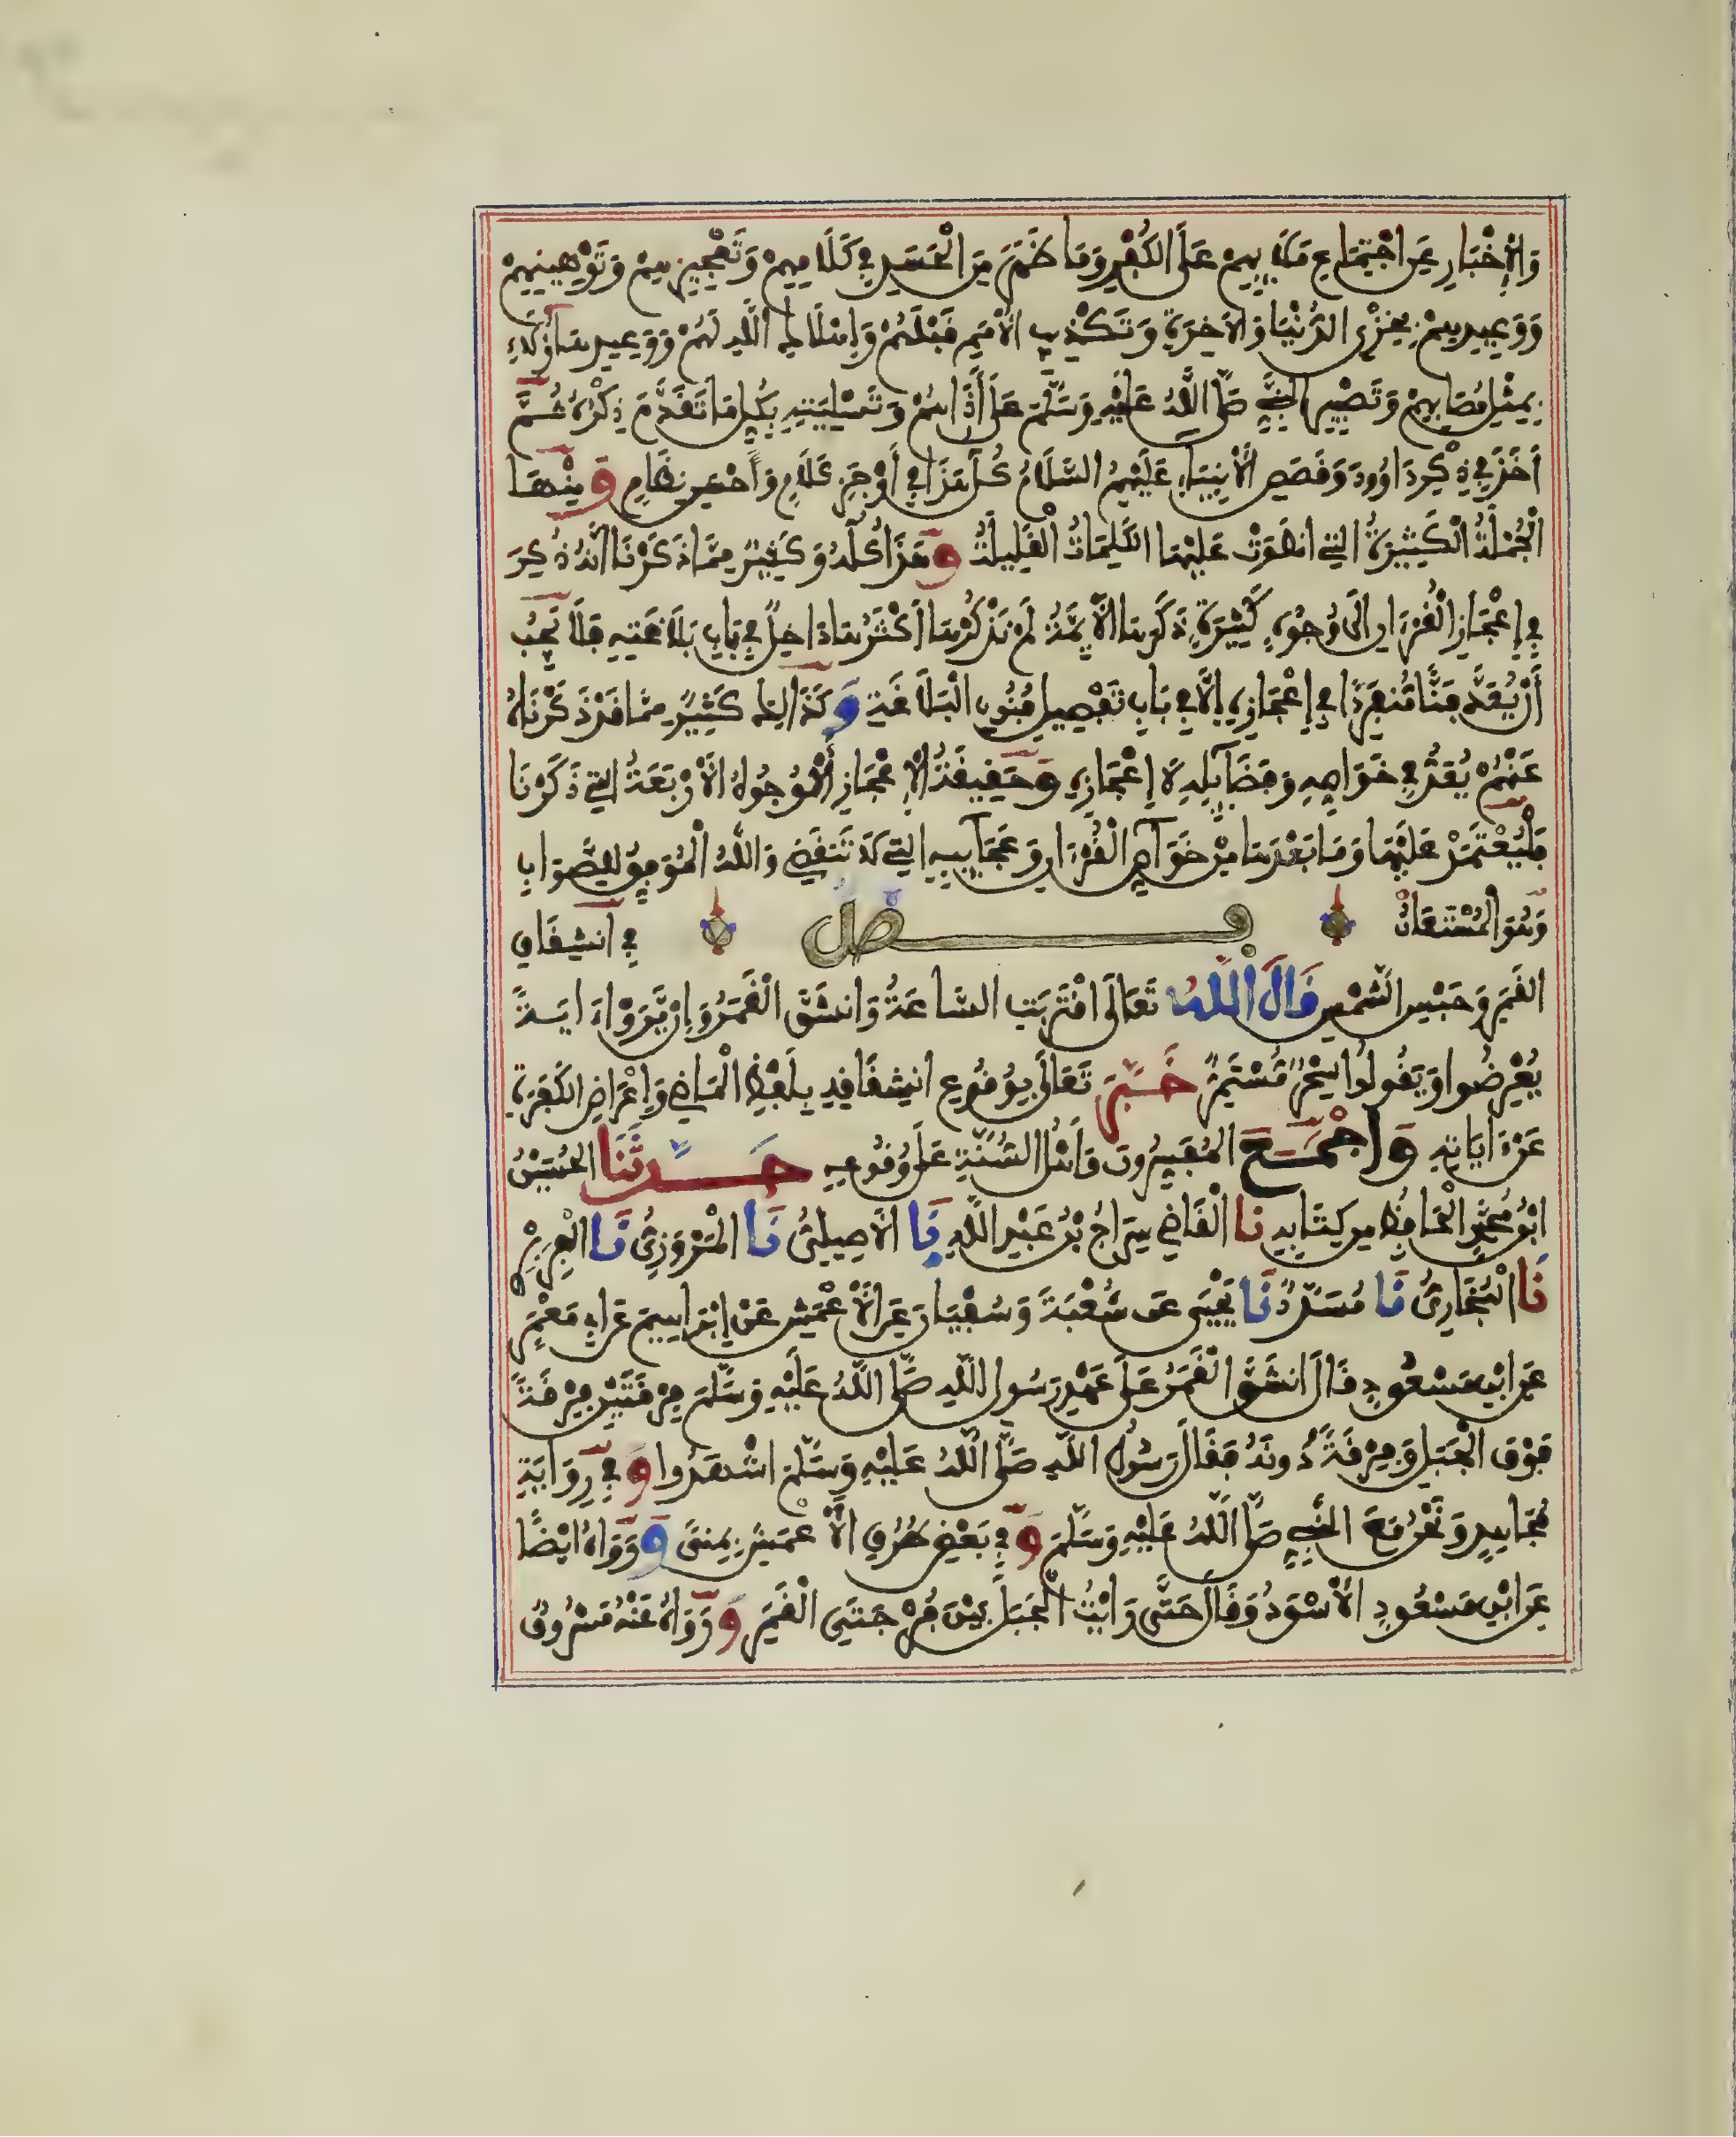 وَالْإِخْبَارِ عَنِ اجْتِمَاعِ مَلَإِهِمْ عَلَى الْكُفْرِ وَمَا ظَهَرَ مِنَ الْحَسَدِ فِي كَلَامِهِمْ وَتَعْجِيزِهِمْ وَتَوْهِينِهِمْ
وَوَعِيدِهِمْ بِخِزْيِ الدُّنْيَا وَالْآخِرَةِ وَتَكْذِيبِ الْأُمَمِ قَبْلَهُمْ وَإِهْلَاكِ اللَّهِ لَهُمْ وَوَعِيدِ هَؤُلَاءِ
بِمِثْلِ مُصَابِهِمْ وَتَصْبِيرِ النَّبِيِّ صَلَّى اللَّهُ عَلَيْهِ وَسَلَّمَ عَلَى أَذَاهُمْ وَتَسْلِيَتِهِ بِكُلِّ مَا تَقَدَّمَ ذِكْرُهُ ثُمَّ
أَخَذَ فِي ذِكْرِ دَاوُودَ وَقَصَصِ الْأَنْبِيَاءِ عَلَيْهِمُ السَّلَامُ كُلُّ هَذَا فِي أَوْجَزِ كَلَامٍ وَأَحْسَنِ نِظَامٍ وَمِنْهَا
الْجُمْلَةُ الْكَثِيرَةُ الَّتِي انْطَوَتْ عَلَيْهَا الْكَلِمَاتُ الْقَلِيلَةُ وَهَذَا كُلُّهُ وَكَثِيرٌ مِمَّا ذَكَرْنَا أَنَّهُ ذُكِرَ
فِي إِعْجَازِ الْقُرْءَانِ إِلَى وُجُوهٍ كَثِيرَةٍ ذَكَرَهَا الْأَئِمَّةُ لَمْ نَذْكُرْهَا أَكْثَرُهَا دَاخِلٌ فِي بَابِ بَلَاغَتِهِ فَلَا يَجِبُ
أَنْ يُعَدَّ فَنًّا مُنْفَرِدًا فِي إِعْجَازِهِ إِلَّا فِي بَابِ تَفْصِيلِ فُنُونِ الْبَلَاغَةِ وَكَذَالِكَ كَثِيرٌ مِمَّا قَدْ ذَكَرْنَاهُ
عَنْهُمْ يُعَدُّ فِي خَوَاصِّهِ وَفَضَائِلِهِ لَا إِعْجَازِهِ وَحَقِيقَةُ الْإِعْجَازِ الْوُجُوهُ الْأَرْبَعَةُ الَّتِي ذَكَرْنَا
فَلْيُعْتَمَدْ عَلَيْهَا وَمَا بَعْدَهَا مِنْ خَوَاصِّ الْقُرْءَانِ وَعَجَائِبِهِ الَّتِي لَا تَنْقَضِي وَاللَّهُ الْمُوَفِّقُ لِلصَّوَابِ
وَهُوَ الْمُسْتَعَانُ فصل فِي انْشِقَاقِ
الْقَمَرِ وَحَبْسِ الشَّمْسِ قَالَ اللَّهُ تَعَالَى اقْتَرَبَتِ السَّاعَةُ وَانْشَقَّ الْقَمَرُ وَإِنْ يَّرَوْاْ ءَايَةً
يُعْرِضُوا وَيَقُولُوا سِحْرٌ مُّسْتَمِرٌّ خَبَّرَ تَعَالَى بِوُقُوعِ انْشِقَاقِهِ بِلَفْظِ الْمَاضِي وَإِعْرَاضِ الْكَفَرَةِ
عَنْ ءَايَاتِهِ وَأَجْمَعَ الْمُفَسِّرُونَ وَأَهْلُ السُّنَّةِ عَلَى وُقُوعِهِ حَدَّثَنَا الْحُسَيْنُ
ابْنُ مُحَمَّدٍ الْحَافِظُ مِن كِتَابِهِ نَا الْقَاضِي سِرَاجُ بْنُ عَبْدِ اللَّهِ نَا الْأَصِيلِيُّ نَا الْمَرْوَزِيُّ نَا الْفِرَبْرِيُّ
نَا الْبُخَارِيُّ نَا مُسَدَّدٌ نَا يَحْيَى عَن شُعْبَةَ وَسُفْيَانَ عَنِ الْأَعْمَشِ عَنْ إِبْرَاهِيمَ عَنْ أَبِي مَعْمَرٍ
عَنِ ابْنِ مَسْعُودٍ قَالَ انْشَقَّ الْقَمَرُ عَلَى عَهْدِ رَسُولِ اللَّهِ صَلَّى اللَّهُ عَلَيْهِ وَسَلَّمَ فِرْقَتَيْنِ فِرْقَةً
فَوْقَ الْجَبَلِ وَفِرْقَةً دُونَهُ فَقَالَ رَسُولُ اللَّهِ صَلَّى اللَّهُ عَلَيْهِ وَسَلَّمَ اشْهَدُوا وَفِي رِوَايَةِ
مُجَاهِدٍ وَنَحْنُ مَعَ النَّبِيِّ صَلَّى اللَّهُ عَلَيْهِ وَسَلَّمَ وَفِي بَعْضِ طُرُقِ الْأَعْمَشِ بِمِنًى وَرَوَاهُ أَيْضًا
عَنِ ابْنِ مَسْعُودٍ الْأَسْوَدُ وَقَالَ حَتَّى رَأَيْتُ الْجَبَلَ بَيْنَ فُرْجَتَيِ الْقَمَرِ وَرَوَاهُ عَنْهُ مَسْرُوقٌ